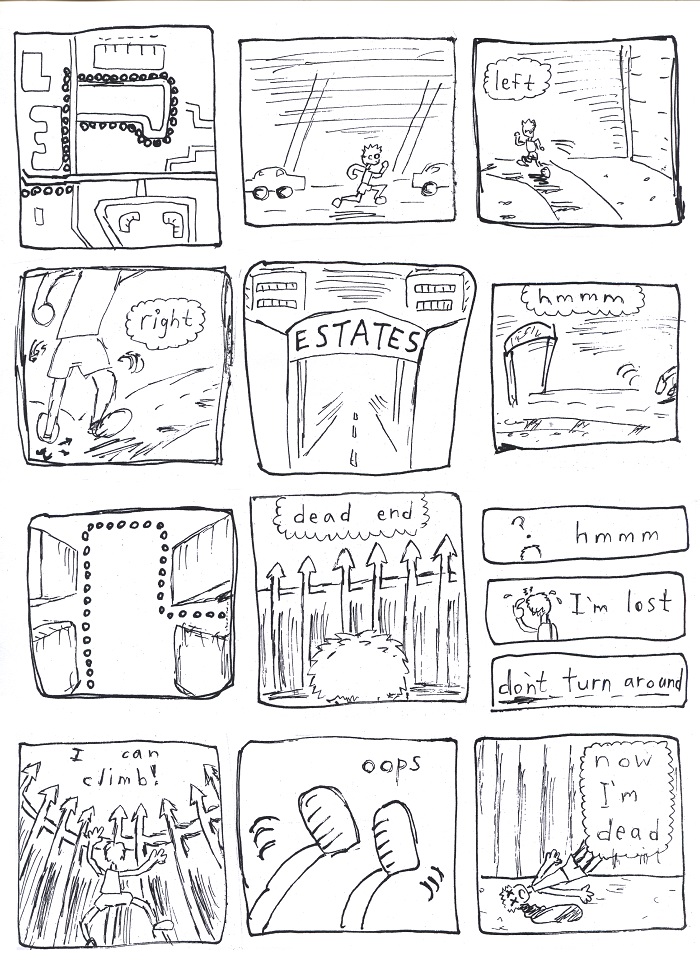 left
right
ESTATES
hmmm
dead end
? hmmm
I'm lost
don't turn around
I can
climb!
oops
now
I'm
dead